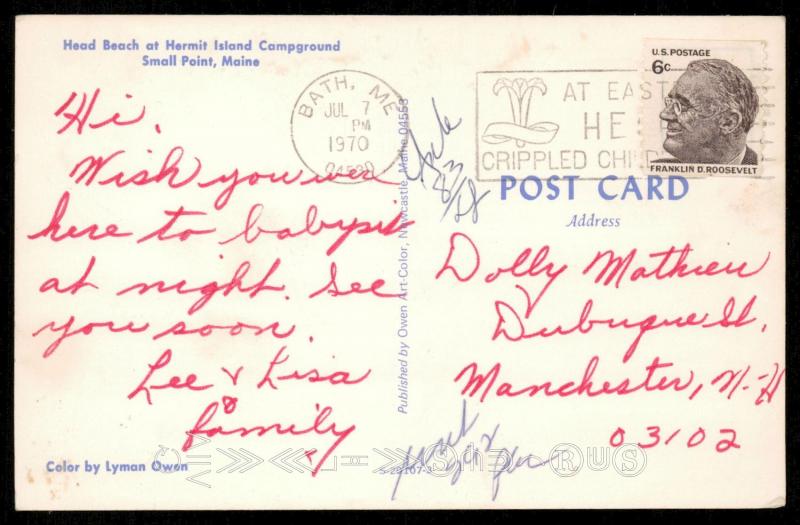 Head Beach at Hermit Island Campground
Small Point, Maine
Hi,
Wish you wer
here to babysit
at night. See
you soon.
Lee & Lisa
& family
Color by Lyman Owen
Published by Owen Art-Color, Newcastle, Maine 04553
S-29107-3
BATH, ME
JUL 7
PM
1970
04530
AT EAST
HE
CRIPPLED CHILD
U.S. POSTAGE
6c
FRANKLIN D. ROOSEVELT
POST CARD
Address
Dolly Mathieu
Dubuque St.
Manchester, N-H
03102